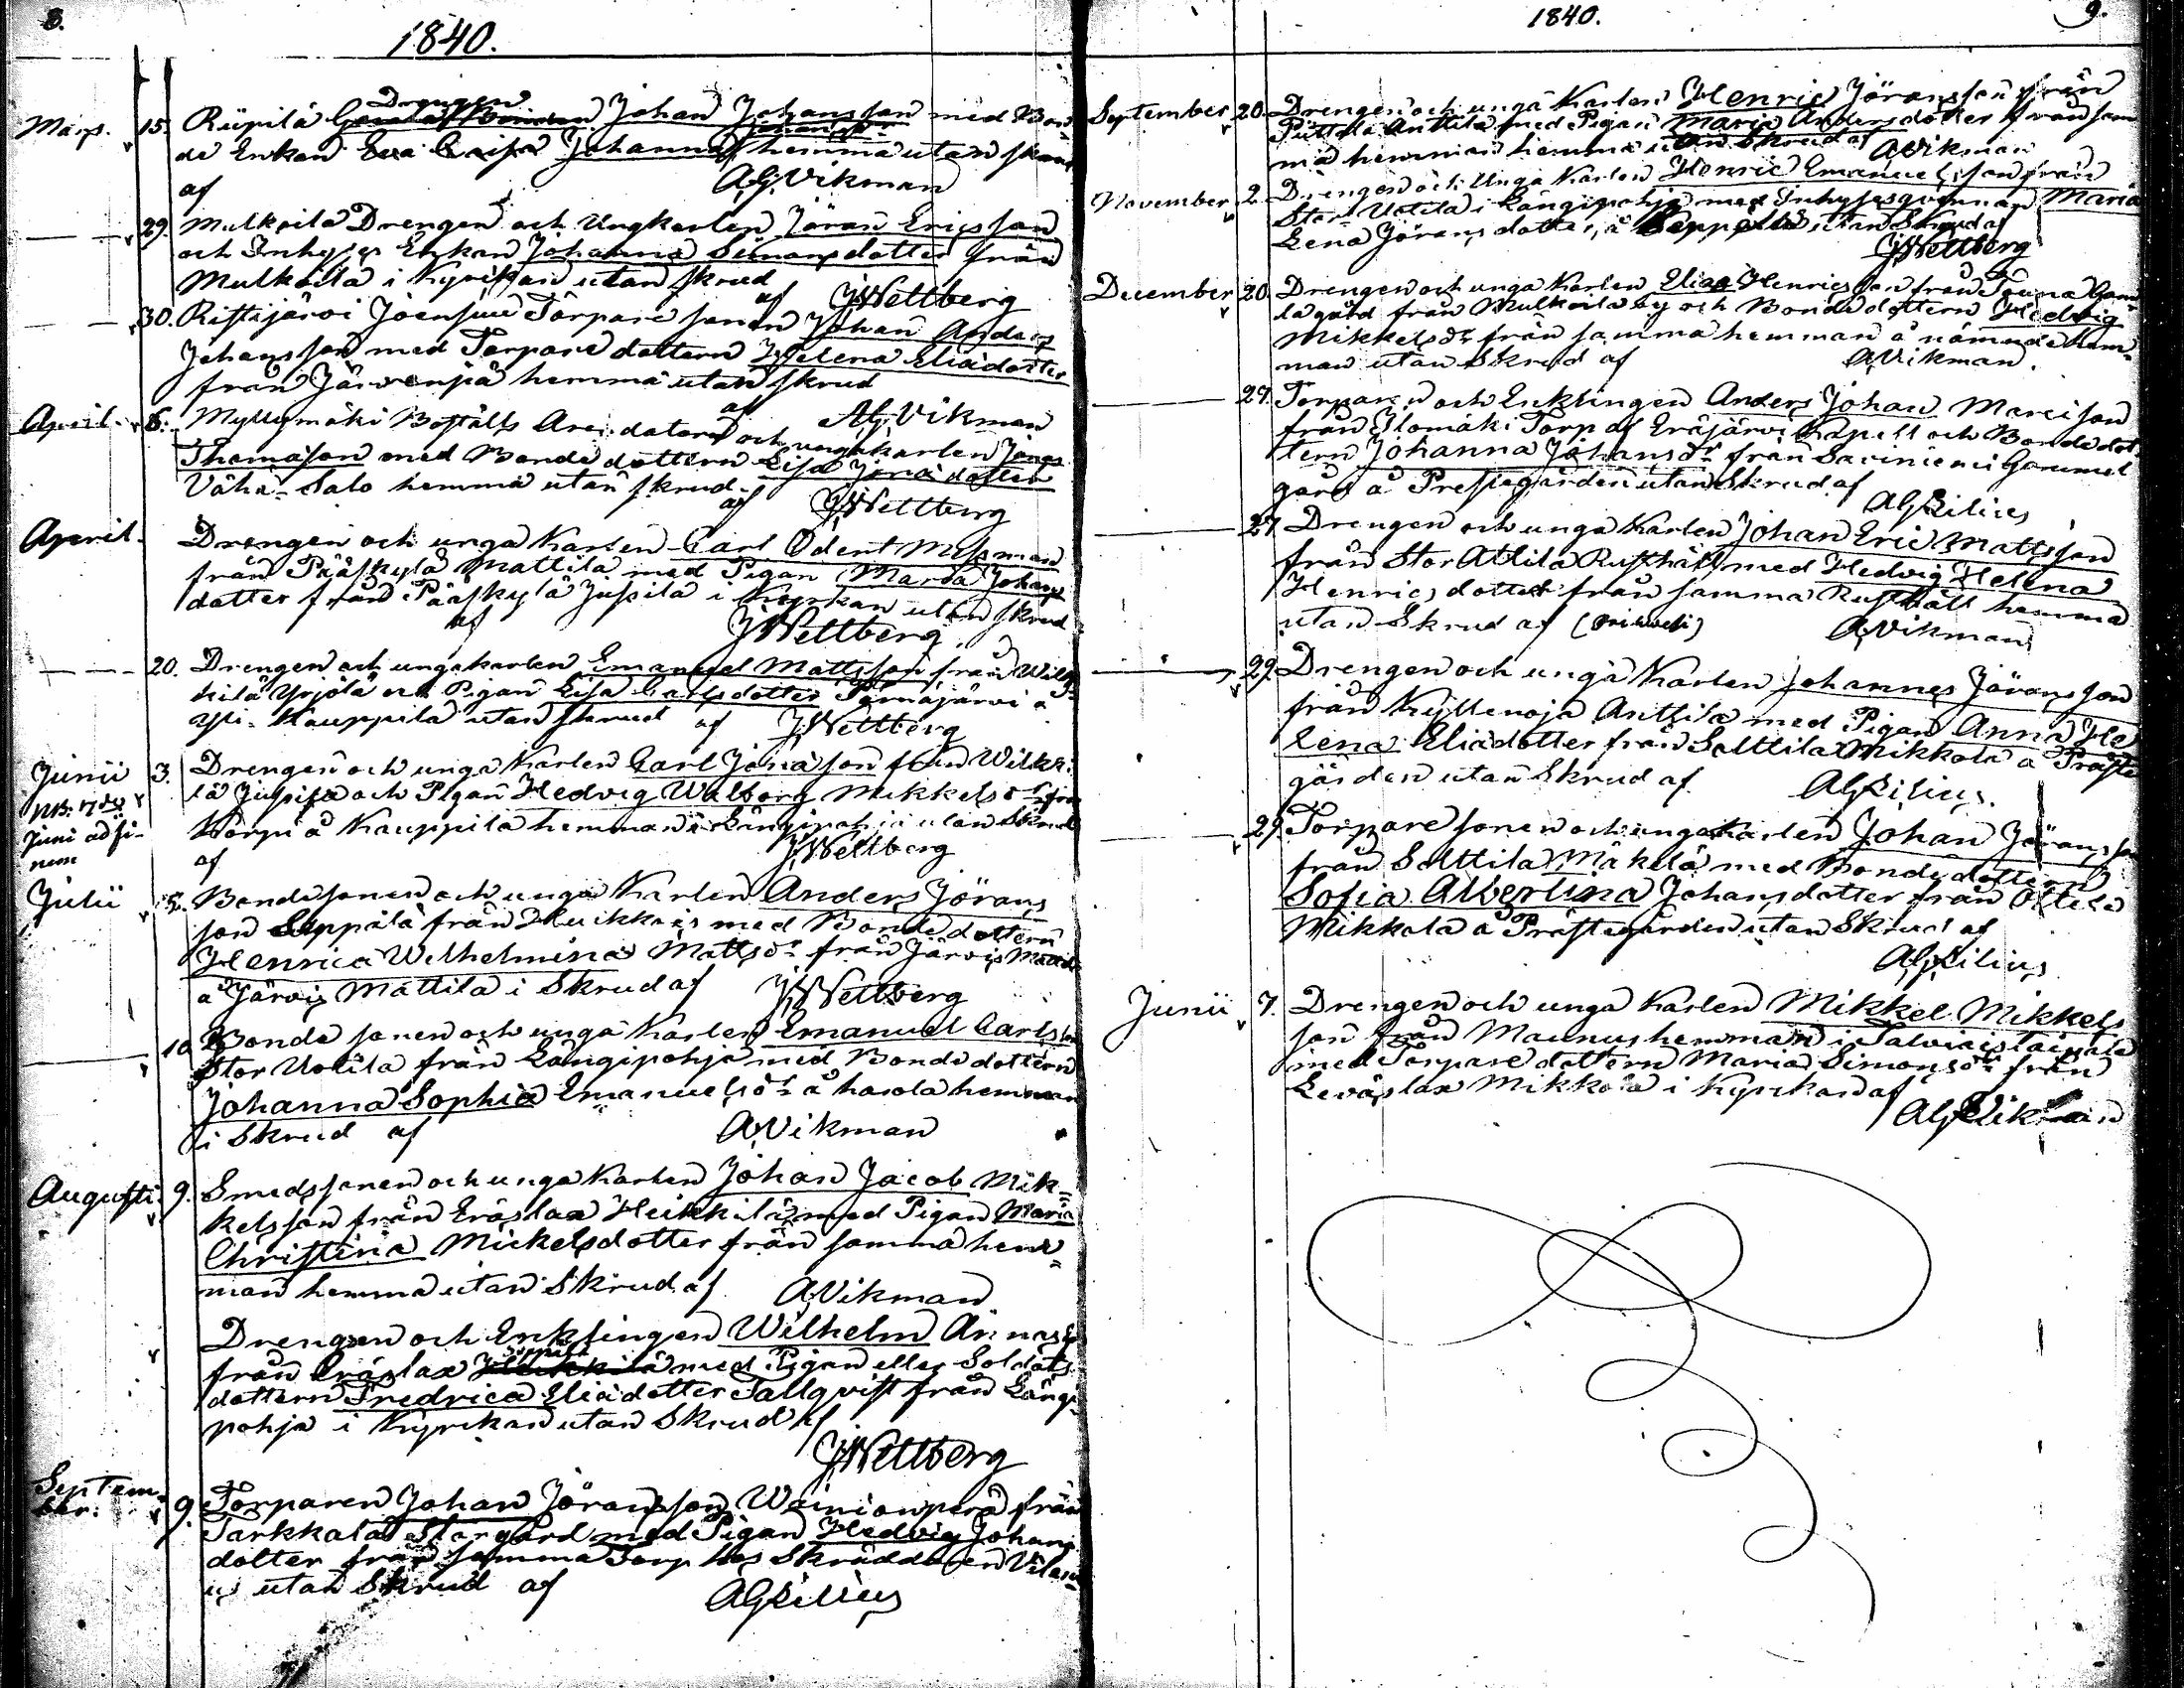 8.
1840.
Mars. 15. Riipilä Drengen Johan Johansson med Bon-
de Enkan Eva Caisa Johanna hemma utan skrud
af AG Vikman
29. Mulkoila Drengen och Ungkarlen Jöran Ericsson
och Inhyses Enkan Johanna Simonsdotter från
Mulkoila i Kyrkan utan skrud
af JWettberg
30. Ristijärvi Joensuu Torpare sonen Johan Anders
Johansson med Torpare dottern Helena Eliädotter
från Järvenpä hemma utan skrud
af AG Vikman
April. 6. Myllymäki Boställs Arendatorn och ungakarlen Jonas
Thomasson med Bonde dottern Lisa Jonädotter
Vähä-Salo hemma utan skrud
af JWettberg
April. Drengen och unga Karlen Carl Odent Messman
från Pääskylä Mattila med Pigan Maria Johans
dotter från Pääskylä Jussila i Kyrkan utan skrud
af JWettberg
20. Drengen och ungakarlen Emanuel Mattsson från Wilk-
kilä Yrjölä och Pigan Lisa Carlsdotter Pämäjärvi å
Kauppila utan skrud af JWettberg
Junii 3. Drengen och unga Karlen Carl Jonäson från Wilkki-
lä Jussila och Pigan Hedvig Walborg Mikkelsdr från
NB. 17de
Juni ad fi-
nem
Korpi å Kauppila hemman i Längipohja utan Skrud
af JWettberg
Julii 5. Bondesonen och unga Karlen Anders Jörans
son Seppälä från med Bonde dottern
Henrica Wilhelmina Mattsdr från Järvis Mattila
å Järvis Mattila i Skrud af JWettberg
10 Bonde sonen och unga Karlen Emanuel Carlsson
Stor Uotila från Längipohja med Bonde dottern
Johanna Sophia Emanuelsdr å hemman
i Skrud af AVikman
Augusti. 9. Smedssonen och unga Karlen Johan Jacob Mik-
kelsson från Eräslax Heikkilä med Pigan Maria
Christina Mickelsdotter från samma hem-
man hemma utan Skrud af AVikman
Drengen och Enklingen Wilhelm
från Eräslax Seppälä med Pigan eller Soldats
dottern Fredrica Eliädotter Tallqvist från Längi-
pohja i Kyrkan utan Skrud af
JWettberg
Septem-
ber. 9. Torparen Johan Jöransson Wainionperä från
Tarkkala Storgård med Pigan Hedvig Johans
dotter från samma Torp hos Skräddaren
utan Skrud af AGSilius
1840. 9.
September 20. Drengen och unga Karlen Henric Jöransson från
Anttila med Pigan Maria Andersdotter från sam-
ma hemman hemma utan Skrud af AVikman
November 2. Drengen och Unga Karlen Henric Emanuelsson från
Stor Uotila i Längipohja med Inhysesqvinnan Maria
Lena Jöransdotter, å Seppälä utan Skrud af
JWettberg
December 20. Drengen och unga Karlen Elias Henricsson från Gam-
lagård från Mulkoila by och Bonde dottern Hedvig
Mikkelsdr från samma hemman å nämnde hem-
man utan Skrud af AVikman.
27. Torparen och Enklingen Anders Johan Marcison
från Ilomäki Torp af Eräjärvi Kapell och Bondedot
tern Johanna Johansdr från Saviniemi Gammel
gård å Prestegården utan Skrud af
AGSilius
27 Drengen och unga Karlen Johan Eric Mattsson
från Stor Attila Rusthåll med Hedvig Helena
Henricsdotter från samma Rusthåll hemma
utan Skrud af (Oriwesi) AVikman
29. Drengen och unga Karlen Johannes Jöransson
från Kyttenoja Anttila med Pigan Anna He
lena Eliädotter från Solttila Mikkola å Präste
gården utan Skrud af AGSilius.
29. Torpare sonen och unga Karlen Johan Jöransson
från Solttila Mäkelä med Bonde dottern
Sofia Albertina Johansdotter från
Mikkola å Prästegården utan Skrud af
AGSilius
Junii 7. Drengen och unga Karlen Mikkel Mikkels
son från Maunus hemman i Talviaistaipale
med Torpare dottern Maria Simonsdr från
Leväslax Mikkola i Kyrkan af
AG Vikman